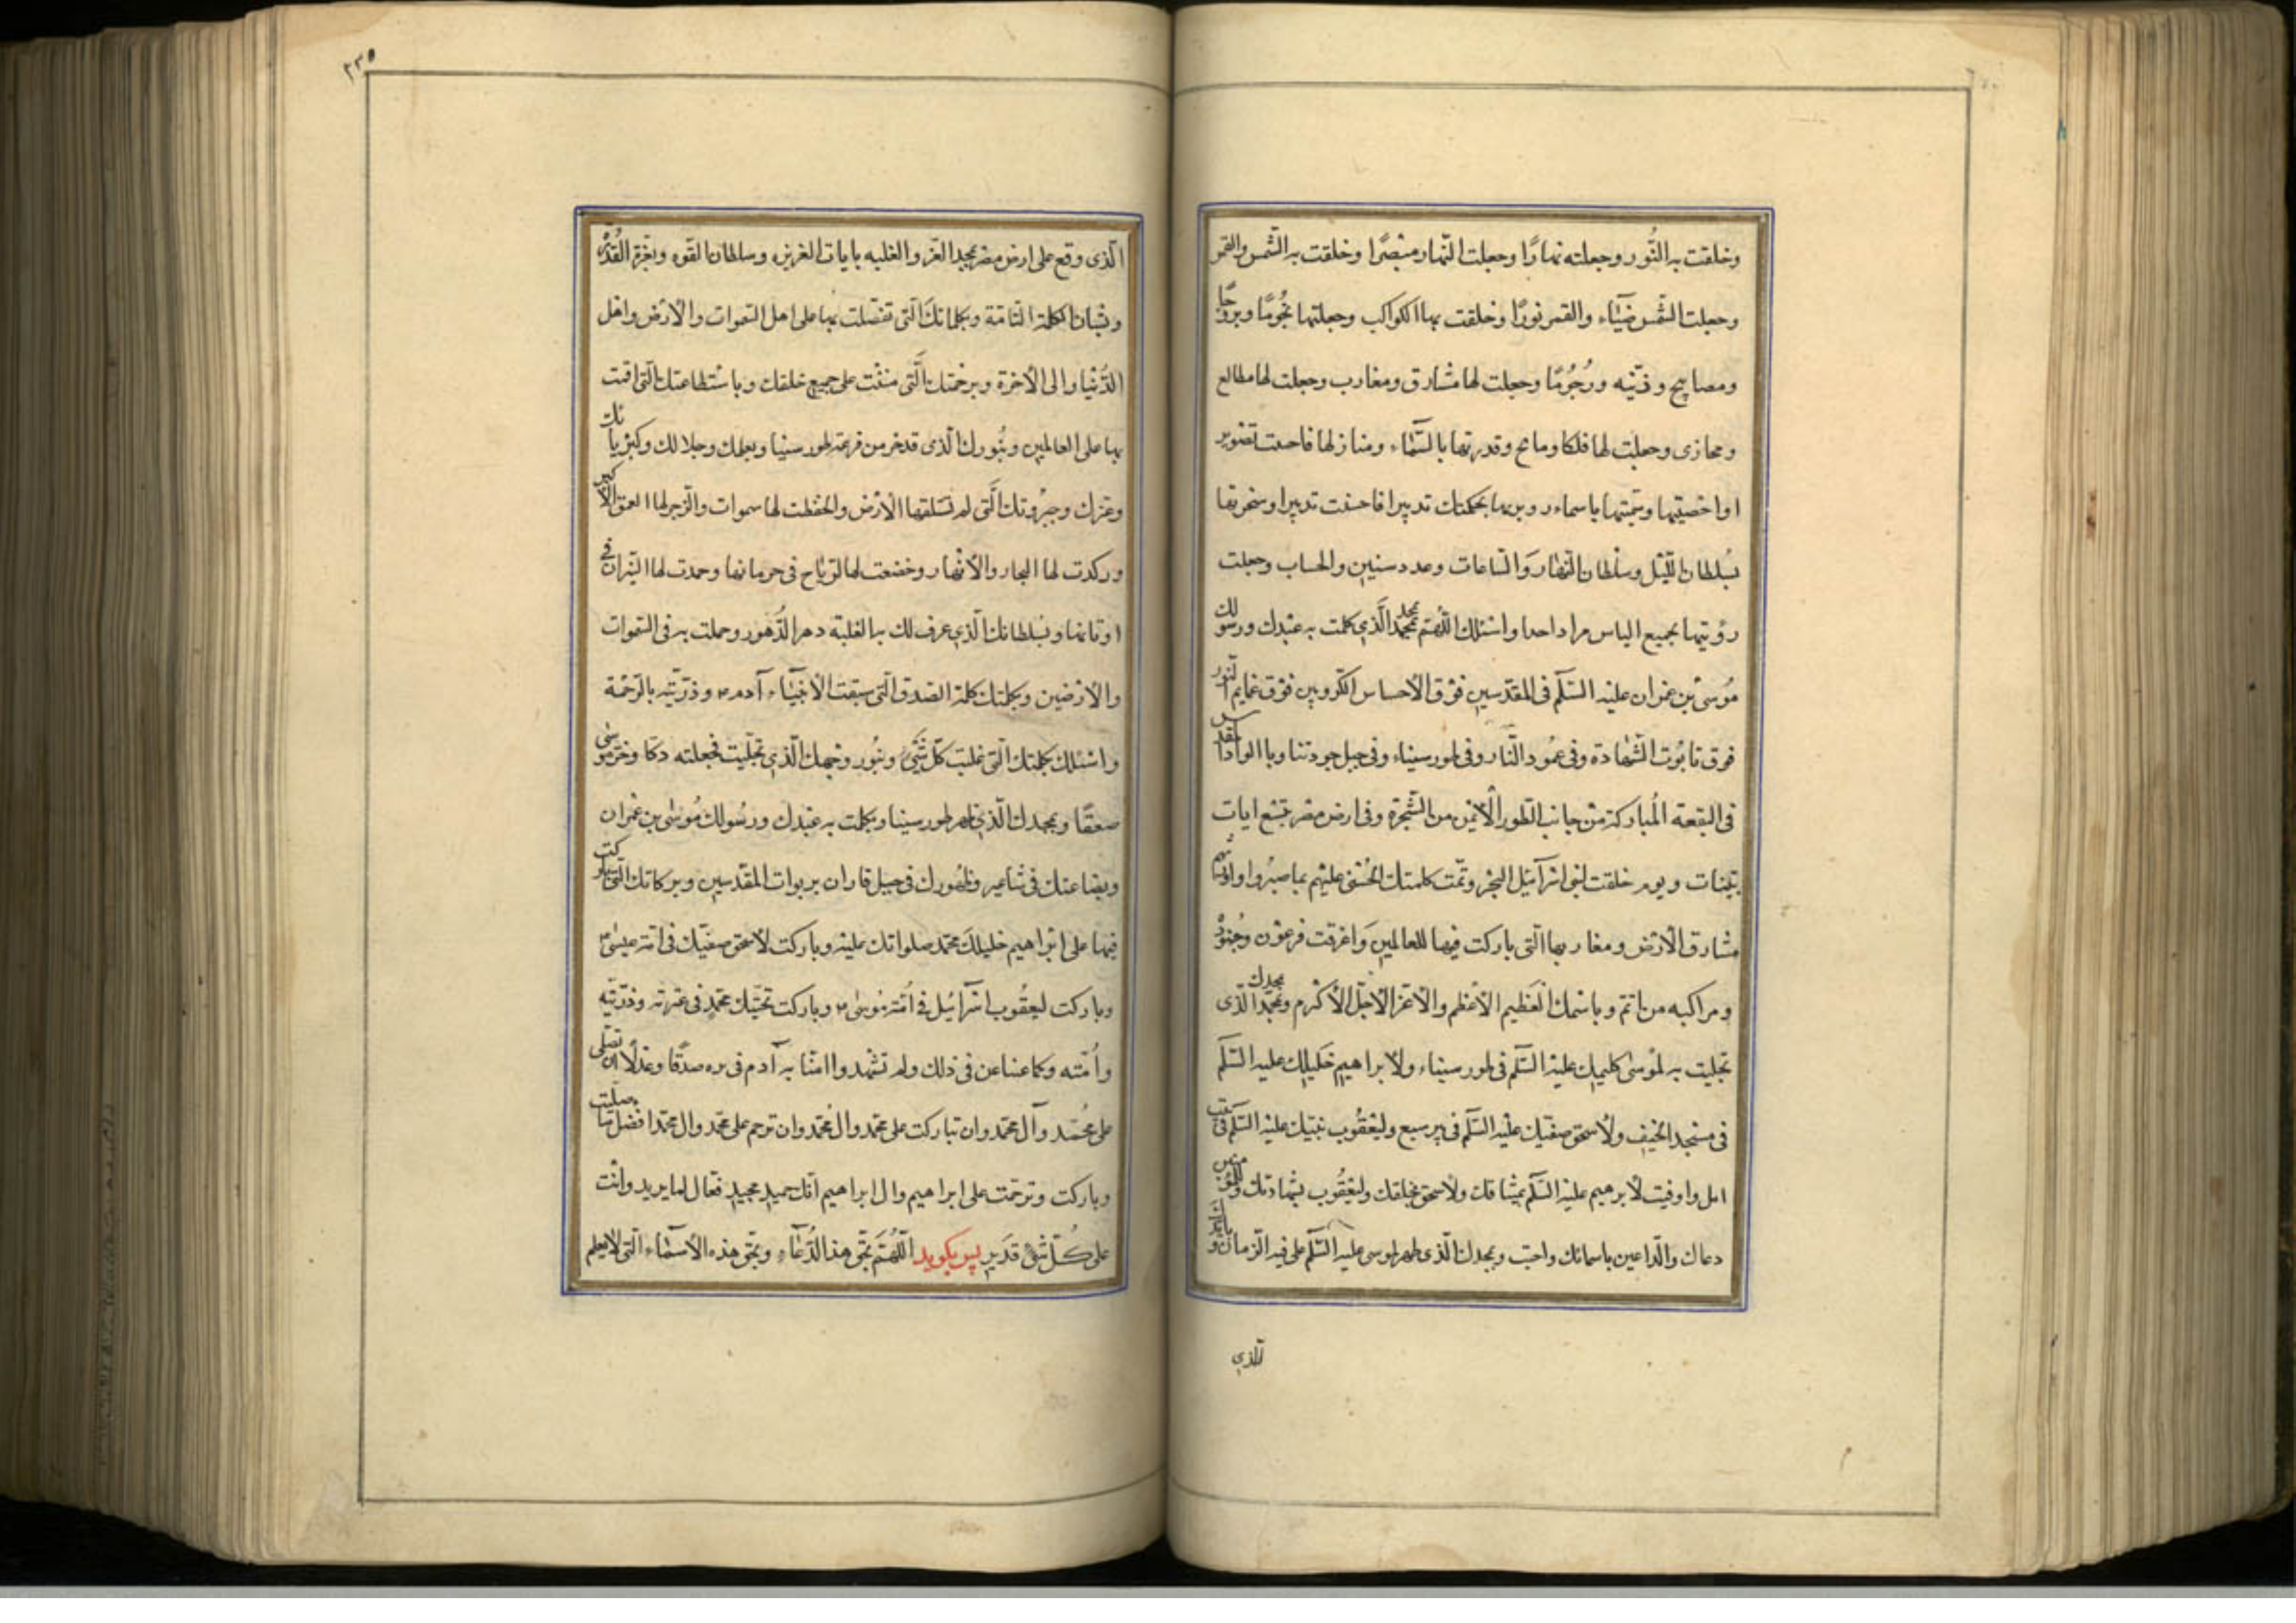 وخلقت به النُّور وجعلته نهارًا وجعلت النّهار مبصرًا وخلقت به الشّمس والقمر
وجعلت الشّمس ضيآء والقمر نورًا وخلقت بها الكواكب وجعلتها نجُومًا وبروجًا
ومصابيح وزينه ورُجُومًا وجعلت لها مشارق ومغارب وجعلت لها مطالع
ومجازى وجعلت لها فلكا وقدرتها بالسّماء ومنازلها فاحسنت تصوير
اواحصيتها باسماء بحكمتك تدبيرا فاحسنت تدبيرا وسخرتها
بسُلطان اللّيل وسلْطان النّهار وَالسّاعات وعدد سنين والحساب وجعلت
رؤيتها بجميع الياس مرا داحدا واسئلك اللّهُمّ بمجدك الَّذي كلمت به عبْدك ورسولك
مُوسى بْن عمْران عليْه السّلم فى المقدّسين فوْق الاحساس الكرّوبين فوْق غمايم النّور
فوق تابُوت الشّهادة وفى عمُود النّار وفى طور سيناء وفى جبل
فى البقعة المُباركة منْ جانب الطّور الْايمن من الشّجرة وفى ارض مصر بتسْع ايات
بيّنات ويوم خلقت لبنى اسْرآئيل البحْر وتمّت كلمتك الحُسْنى عليْهم بما صبرُوا واورثتهم
مشارق الْارْض ومغاربها الّتى باركت فيها للعالمين وَاغرقت فرعوْن وجُنودُه
ومراكبه وباسْمك الْعَظيم الاعْظم والاعزّ الاجلّ الاكْرم وبمجدك الّذى
تجلّيت به لموْسى كليمك عليْه السّلم فى طور سيناء ولابراهيم خَليلك عليْه السّلم
فى مسْجد الخيْف ولاسْحق صفيّك عليْه السّلم فى بير سبع وليعْقُوب نبيّك عليْه السّلم فى بيت
ايل واوفيت لابرهيم عليْه السّلم بميثاقك ولاسحق بخلقك وليعْقُوب بشهادتك وللمؤمنين
دعاك والدّاعين باسمائك واجب وبمجدك الّذى ظهر لموسى عليْه السّلم على
الّذي
٢٣٥
الّذى وقع على ارض مصر بمجد العزّ والغلبه بايات العزيزه وسلطان القوّه وبعزّة القُدْرَة
وبشان الكلمة التّامّة وبكلماتك الّتى تفضّلت بها على اهل السّموات والْارْض واهْل
الدُّنْيا والى الْاخرة وبرحْمتك الَّتى مننْت على جميع خلقك وباسْتطاعتك الّتى اقمت
بها على العالمين وبنُورك الّذى قدخر من فزعه طور سينا وبعلمك وجلالك وكبْريائك
وعزّك وجبرُوتك الَّتى لم تستلقها الْارْض وانخفظت لها سموات وانزجر لها العمق الاكبر
وركدت لها البحار والْانْهار وخضعت لها الرّياح فى جريانها وخمدت لها النّيران فى
اوتانها وبسُلطانك الّذي عرف لك به الغلبة دهر الدُّهور وحملت به فى السّموات
والْارْضين وبكلمتك كلمة الصّدق الّتى سبقت لابيْنآء آدم وذرّيّته بالرّحْمة
واسْئلك بكلمتك الّتى غلبت كلّ شيْئ وبنُور وجْهك الّذي تجلّيت فجعلته دكّا وخرّ موسى
صعقًا وبمجدك الّذي ظهر لطور سينا وكلمت به عبْدك ورسُولك مُوسٰى بن عمْران
وبطاعتك فى شاعير وظهُورك فى جبل فاران بربوات المقدّسين وببركاتك الّتى باركت
فيها على ابْراهيم خليلكَ محمّد صلواتك عليْه وباركت لاسحق صفيّك فى امّته عيسى
وباركت ليعقُوب اسْرآئيل فى اُمّته مُوسٰى وباركت محمّدٍ فى عترته وذرّيّته
واُمّته وكما غبنا عن فى ذلك ولم نشْهد وامنّا به آدم فى يره صدْقًا وعدْلًا ان تصلّى
على مُحمّد وآل محمّد وان تبارك على محمّد وال مُحمّد وان ترحم على محمّد وال محمّد افضل ما صلّيت
وباركت وترحّمت على ابراهيم وال ابراهيم انّك حميد مجيد فعّال لما يريد وانْت
على كُلّ شئ قَدير پس بكويد اللّهُمَّ بحقّ هذا الدُّعاء وبحقّ هذه الاسْمآء الّتى لا يعلم